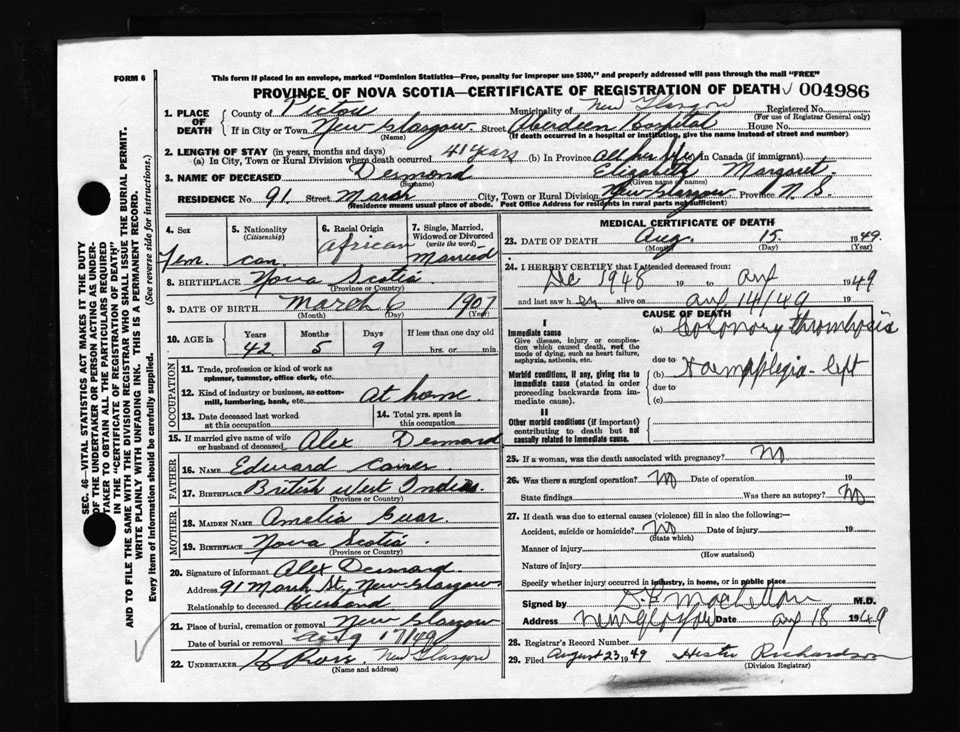 FORM 6
This form if placed in an envelope, marked "Dominion Statistics—Free, penalty for improper use $300," and properly addressed will pass through the mail "FREE"
PROVINCE OF NOVA SCOTIA—CERTIFICATE OF REGISTRATION OF DEATH 004986
1. PLACE OF DEATH
County of Pictou Municipality of New Glasgow Registered No.
(For use of Registrar General only)
If in City or Town New Glasgow Street Aberdeen Hospital House No.
(Name) (If death occurred in a hospital or institution, give the name instead of street and number)
2. LENGTH OF STAY (in years, months and days)
(a) In City, Town or Rural Division where death occurred 41 years (b) In Province all her life (c) in Canada (if immigrant)
3. NAME OF DECEASED Desmond Elizabeth Margaret
(Surname) (Given name or names)
RESIDENCE No 91 Street Marsh City, Town or Rural Division New Glasgow Province N.S.
(Residence means usual place of abode. Post Office Address for residents in rural parts not sufficient)
4. Sex
Fem.
5. Nationality
(Citizenship)
Can.
6. Racial Origin
African
7. Single, Married, Widowed or Divorced
(write the word)
Married
8. BIRTHPLACE Nova Scotia
(Province or Country)
9. DATE OF BIRTH March 6 1907
(Month) (Day) (Year)
10. AGE in Years Months Days If less than one day old
42 5 9 hrs. or min.
OCCUPATION
11. Trade, profession or kind of work as spinner, teamster, office clerk, etc.
12. Kind of industry or business, as cotton-mill, lumbering, bank, etc. At home
13. Date deceased last worked at this occupation
14. Total yrs. spent in this occupation
15. If married give name of wife or husband of deceased Alex Desmond
FATHER
16. NAME Edward
17. BIRTHPLACE British West Indies
(Province or Country)
MOTHER
18. MAIDEN NAME Amelia
19. BIRTHPLACE Nova Scotia
(Province or Country)
20. Signature of informant Alex Desmond
Address 91 Marsh St., New Glasgow
Relationship to deceased Husband
21. Place of burial, cremation or removal New Glasgow
Date of burial or removal Aug 17/49
22. UNDERTAKER New Glasgow
(Name and address)
MEDICAL CERTIFICATE OF DEATH
23. DATE OF DEATH Aug. 15 1949
(Month) (Day) (Year)
24. I HEREBY CERTIFY that I attended deceased from:
Dec 1948 19 to Aug 1949
and last saw her alive on Aug 14/49 19
CAUSE OF DEATH
I
Immediate cause
Give disease, injury or complication which caused death, not the mode of dying, such as heart failure, asphyxia, asthenia, etc.
(a) Coronary thrombosis
due to
Morbid conditions, if any, giving rise to immediate cause (stated in order proceeding backwards from immediate cause).
(b) Haemaplegia - left
due to
(c)
II
Other morbid conditions (if important) contributing to death but not causally related to immediate cause.
25. If a woman, was the death associated with pregnancy? No
26. Was there a surgical operation? No Date of operation 19
State findings Was there an autopsy? No
27. If death was due to external causes (violence) fill in also the following:—
Accident, suicide or homicide? No Date of injury 19
(State which)
Manner of injury
(How sustained)
Nature of injury
Specify whether injury occurred in industry, in home, or in public place
Signed by M.D.
Address New Glasgow Date Aug 18 1949
28. Registrar's Record Number
29. Filed August 23 1949 Richardson
(Division Registrar)
SEC. 46—VITAL STATISTICS ACT MAKES IT THE DUTY
OF THE UNDERTAKER OR PERSON ACTING AS UNDER-
TAKER TO OBTAIN ALL THE PARTICULARS REQUIRED
IN THE "CERTIFICATE OF REGISTRATION OF DEATH"
AND TO FILE THE SAME WITH THE DIVISION REGISTRAR WHO SHALL ISSUE THE BURIAL PERMIT.
WRITE PLAINLY WITH UNFADING INK. THIS IS A PERMANENT RECORD.
Every item of information should be carefully supplied. (See reverse side for instructions.)